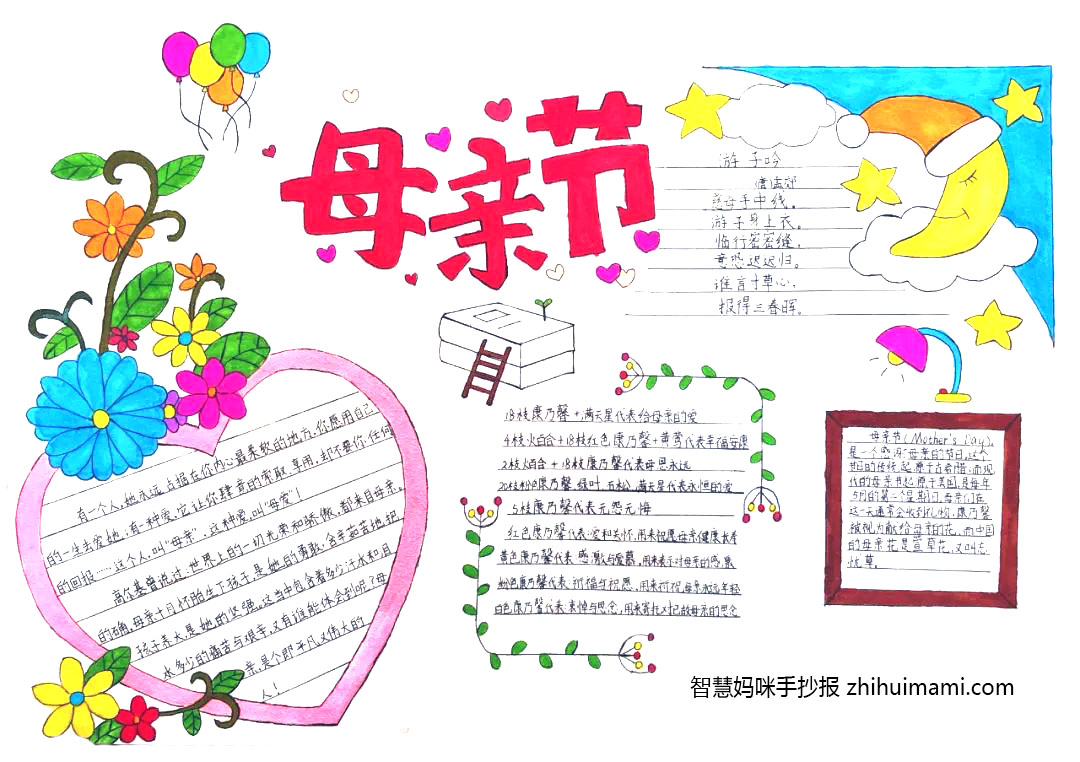 母亲节
游子吟
唐 孟郊
慈母手中线。
游子身上衣。
临行密密缝,
意恐迟迟归。
谁言寸草心,
报得三春晖。
有一个人,她永远占据在你内心最柔软的地方,你愿用自己
的一生去爱她;有一种爱,它让你肆意的索取、享用,却不要你任何
的回报……这个人,叫“母亲”,这种爱,叫“母爱”!
高尔基曾说过:世界上的一切光荣和骄傲,都来自母亲。
的确,母亲十月怀胎生下孩子,是她的勇敢,含辛茹苦地把
孩子养大,是她的坚强。这当中包含着多少汗水和月
水多少的痛苦与艰辛,又有谁能体会到呢?母
亲,是个即平凡又伟大的
人!
18枝康乃馨+满天星代表给母亲的爱
4枝火百合+18枝红色康乃馨+黄莺代表幸福安康
2枝火百合+18枝康乃馨代表母恩永远
20枝粉色康乃馨、绿叶、石松、满天星代表永恒的爱
5枝康乃馨代表无怨无悔
红色康乃馨代表爱和关怀,用来祝愿母亲健康长寿
黄色康乃馨代表感激与爱慕,用来表示对母亲的感激
粉色康乃馨代表祈福与祝愿,用来祈祝母亲永远年轻
白色康乃馨代表哀悼与思念,用来寄托对已故母亲的思念
母亲节(Mother's Day),
是一个感谢母亲的节日,这个
节日的传统起源于古希腊,而现
代的母亲节起源于美国,是每年
5月的第二个星期日,母亲们在
这一天通常会收到礼物,康乃馨
被视为献给母亲的花,而中国
的母亲花是萱草花,又叫忘
忧草。
智慧妈咪手抄报 zhihuimami.com